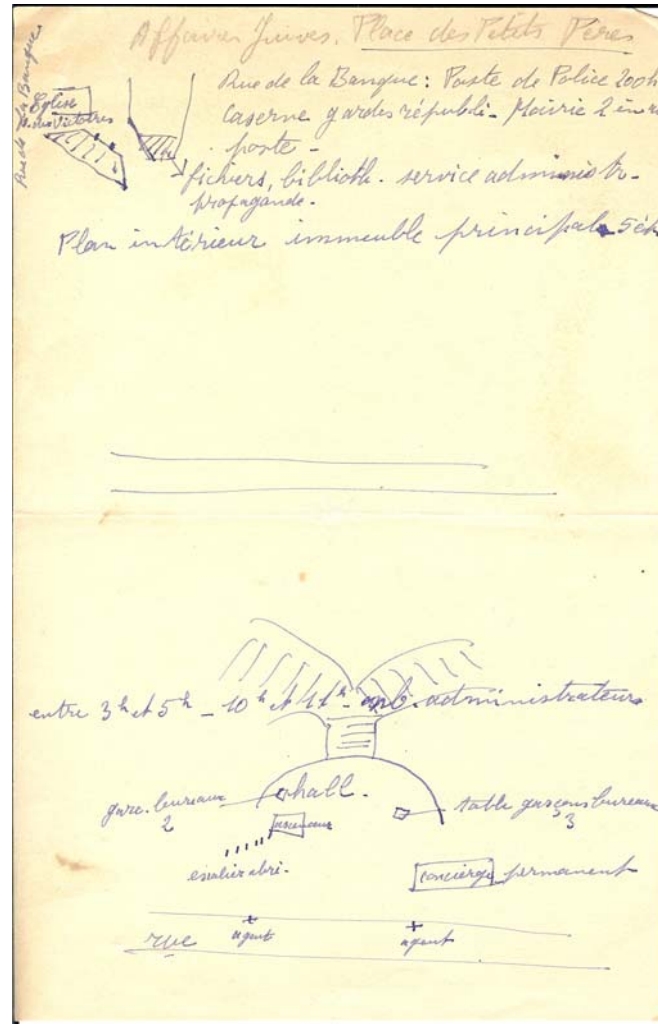 Affaires Juives. Place des Petits Pères
Rue de la Banque
Eglise
Victoires
Rue de la Banque : Poste de Police 200 h
caserne gardes républi - Mairie 2 em
poste -
fichiers, biblioth. service administr -
propagande -
Plan intérieur immeuble principal - 5 ét
entre 3h et 5h - 10h et 11h - administrateurs
garc. bureaux
2
hall -
table garçons bureaux
3
ascenseur
escalier abri -
concierge permanent
rue
agent
agent